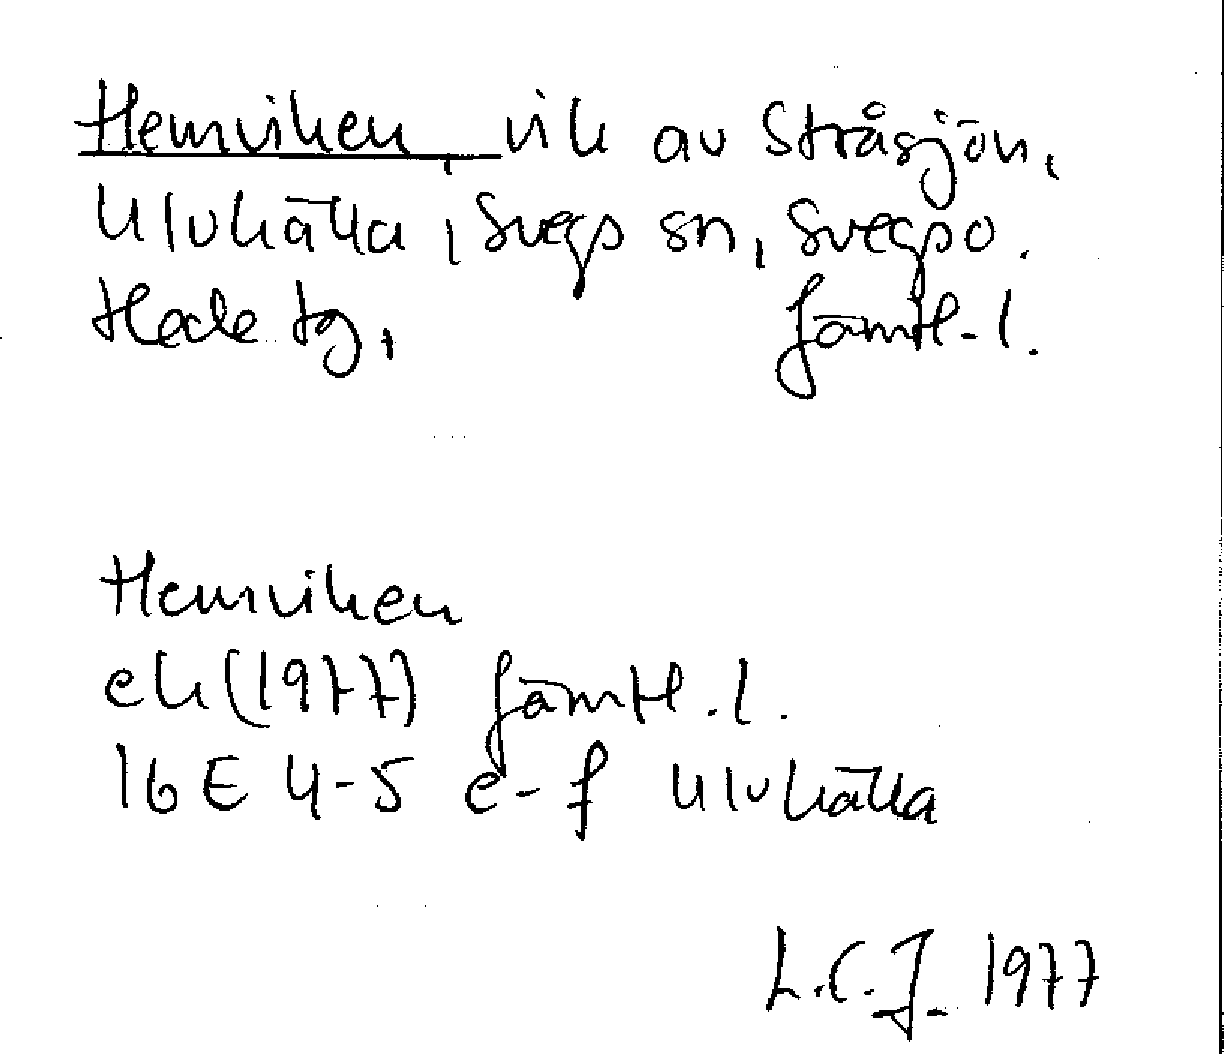 Hemviken, vik av Stråsjön,
Ulvkälla, Svegs sn, Svegs o.
Hede tg, Jämtl. l.
Hemviken
ek (1977) Jämtl. l.
16E 4-5 e-f Ulvkälla
L.C.J. 1977